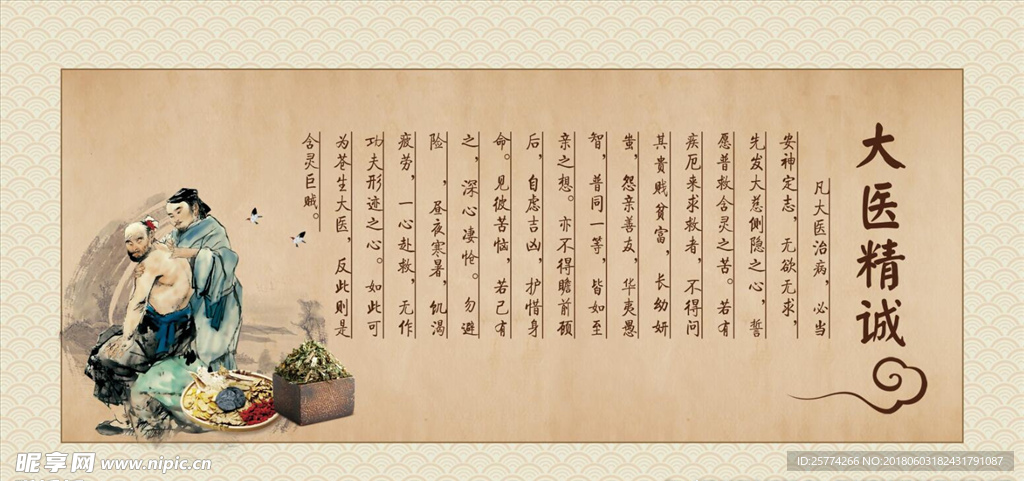 大医精诚
凡大医治病，必当
安神定志，无欲无求，
先发大慈恻隐之心，誓
愿普救含灵之苦。若有
疾厄来求救者，不得问
其贵贱贫富，长幼妍
蚩，怨亲善友，华夷愚
智，普同一等，皆如至
亲之想。亦不得瞻前顾
后，自虑吉凶，护惜身
命。见彼苦恼，若己有
之，深心凄怆。勿避
险 ，昼夜寒暑，饥渴
疲劳，一心赴救，无作
功夫形迹之心。如此可
为苍生大医，反此则是
含灵巨贼。
昵享网 www.nipic.cn
ID:25774266 NO:20180603182431791087